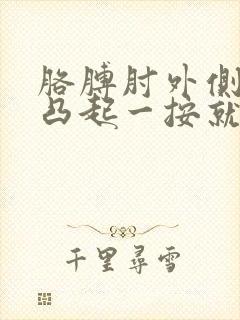 胳膊肘外侧
凸起一按就
千里尋雪